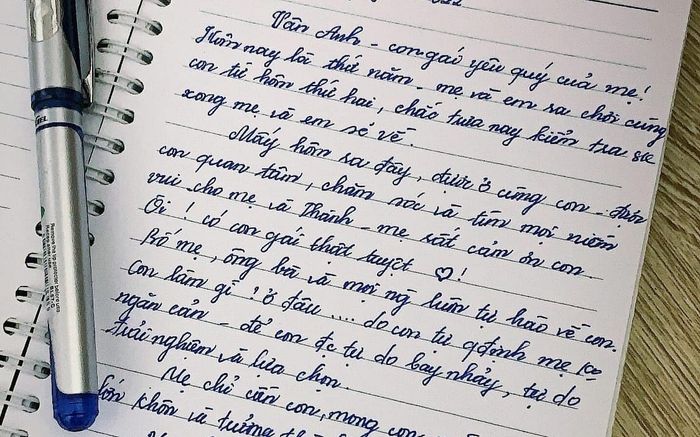 2022
Vân Anh - con gái yêu quý của mẹ!
Hôm nay là thứ năm - mẹ và em ra chơi cùng
con từ hôm thứ hai, chắc trưa nay kiểm tra sk
xong mẹ và em sẽ về.
Mấy hôm ra đây, được ở cùng con - được
con quan tâm, chăm sóc và tìm mọi niềm
vui cho mẹ và Thành - mẹ rất cảm ơn con.
Ôi! có con gái thật tuyệt ♡!
Bố mẹ, ông bà và mọi ng luôn tự hào về con.
Con làm gì? ở đâu .... do con tự qđịnh mẹ ko
ngăn cản - để con đc tự do bay nhảy, tự do
trải nghiệm và lựa chọn.
Mẹ chỉ cần con, mong con
lớn khôn và trưởng